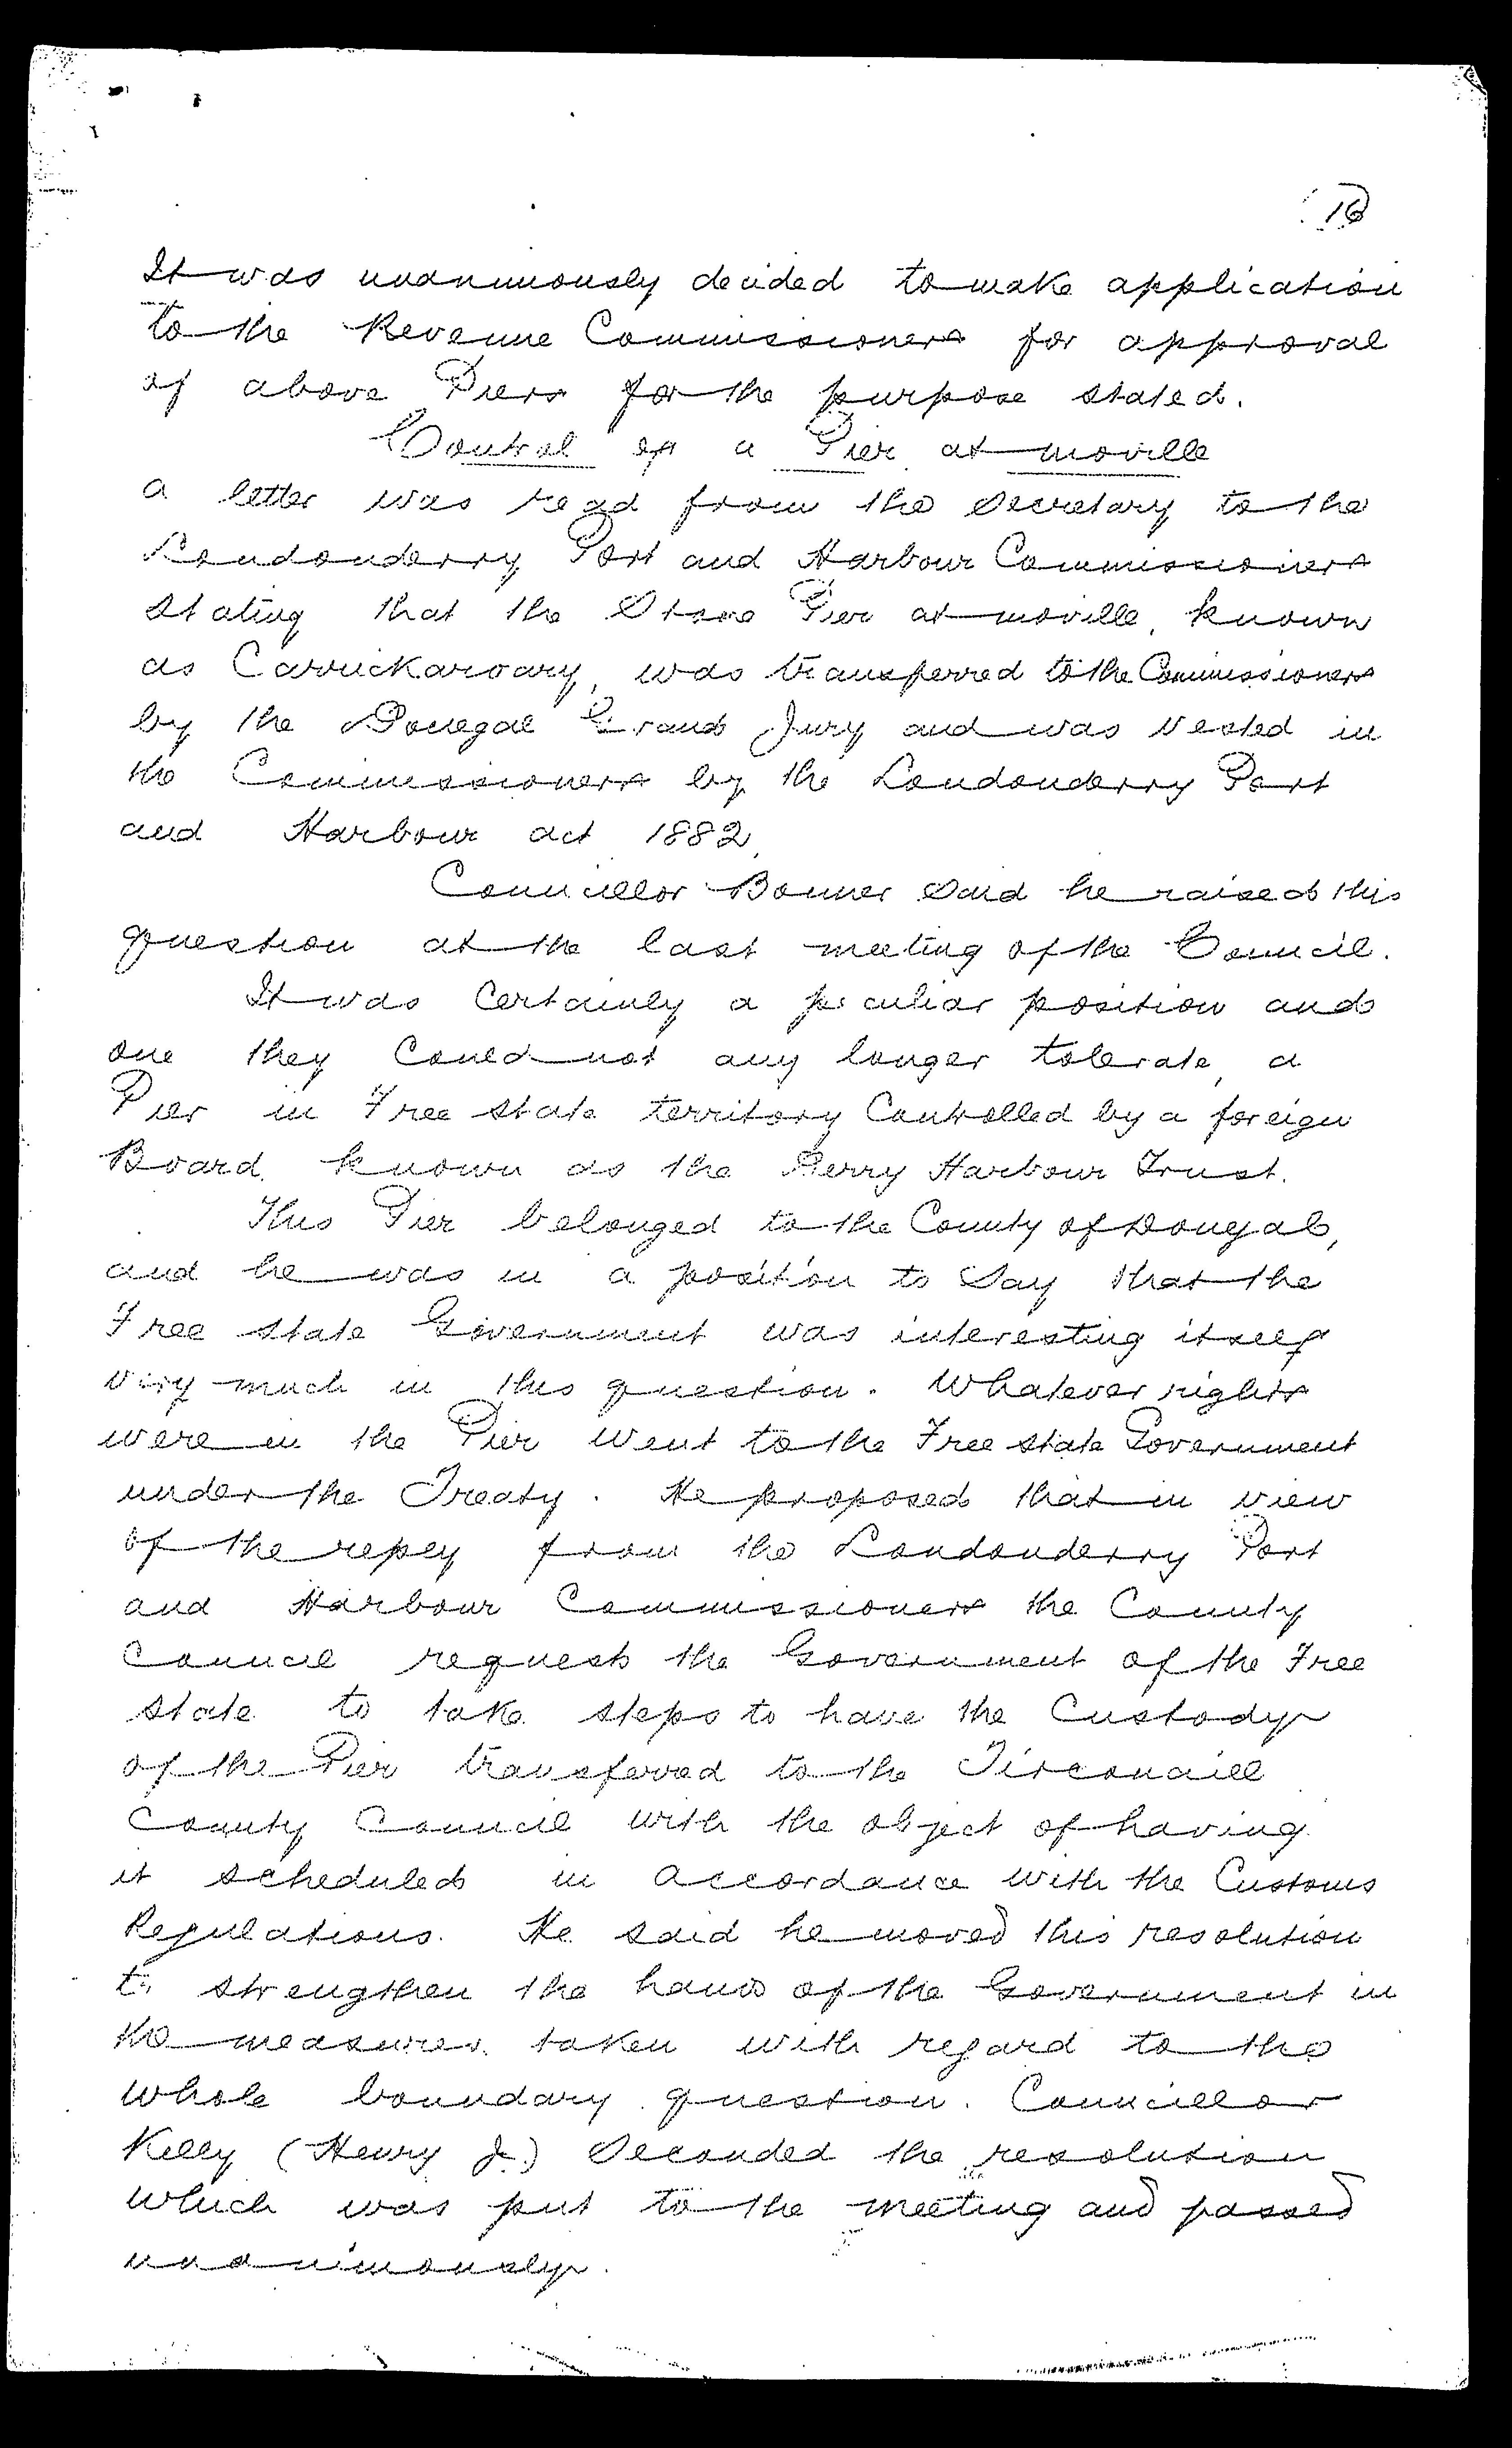 16
It was unanimously decided to make application
to the Revenue Commissioners for approval
of above Piers for the purpose stated.
Control of a Pier at Moville
a letter was read from the Secretary to the
Londonderry Port and Harbour Commissioners
stating that the Stone Pier at Moville, known
as Carrickarory, was transferred to the Commissioners
by the Donegal Grand Jury and was vested in
the Commissioners by the Londonderry Port
and Harbour Act 1882.
Councillor Bonner said he raised this
question at the last meeting of the Council.
It was certainly a peculiar position and
one they could not any longer tolerate, a
Pier in Free State territory controlled by a foreign
Board, known as the Derry Harbour Trust.
This Pier belonged to the County of Dongal,
and he was in a position to say that the
Free State Government was interesting itself
very much in this question. Whatever rights
were in the Pier went to the Free State Government
under the Treaty. He proposed that in view
of the reply from the Londonderry Port
and Harbour Commissioners the County
Council requests the Government of the Free
State to take steps to have the custody
of the Pier transferred to the Tirconaill
County Council with the object of having
it scheduled in accordance with the Customs
Regulations. He said he moved this resolution
to strengthen the hands of the Government in
the measures taken with regard to the
whole boundary question. Councillor
Kelly (Henry J.) seconded the resolution
which was put to the meeting and passed
unanimously.